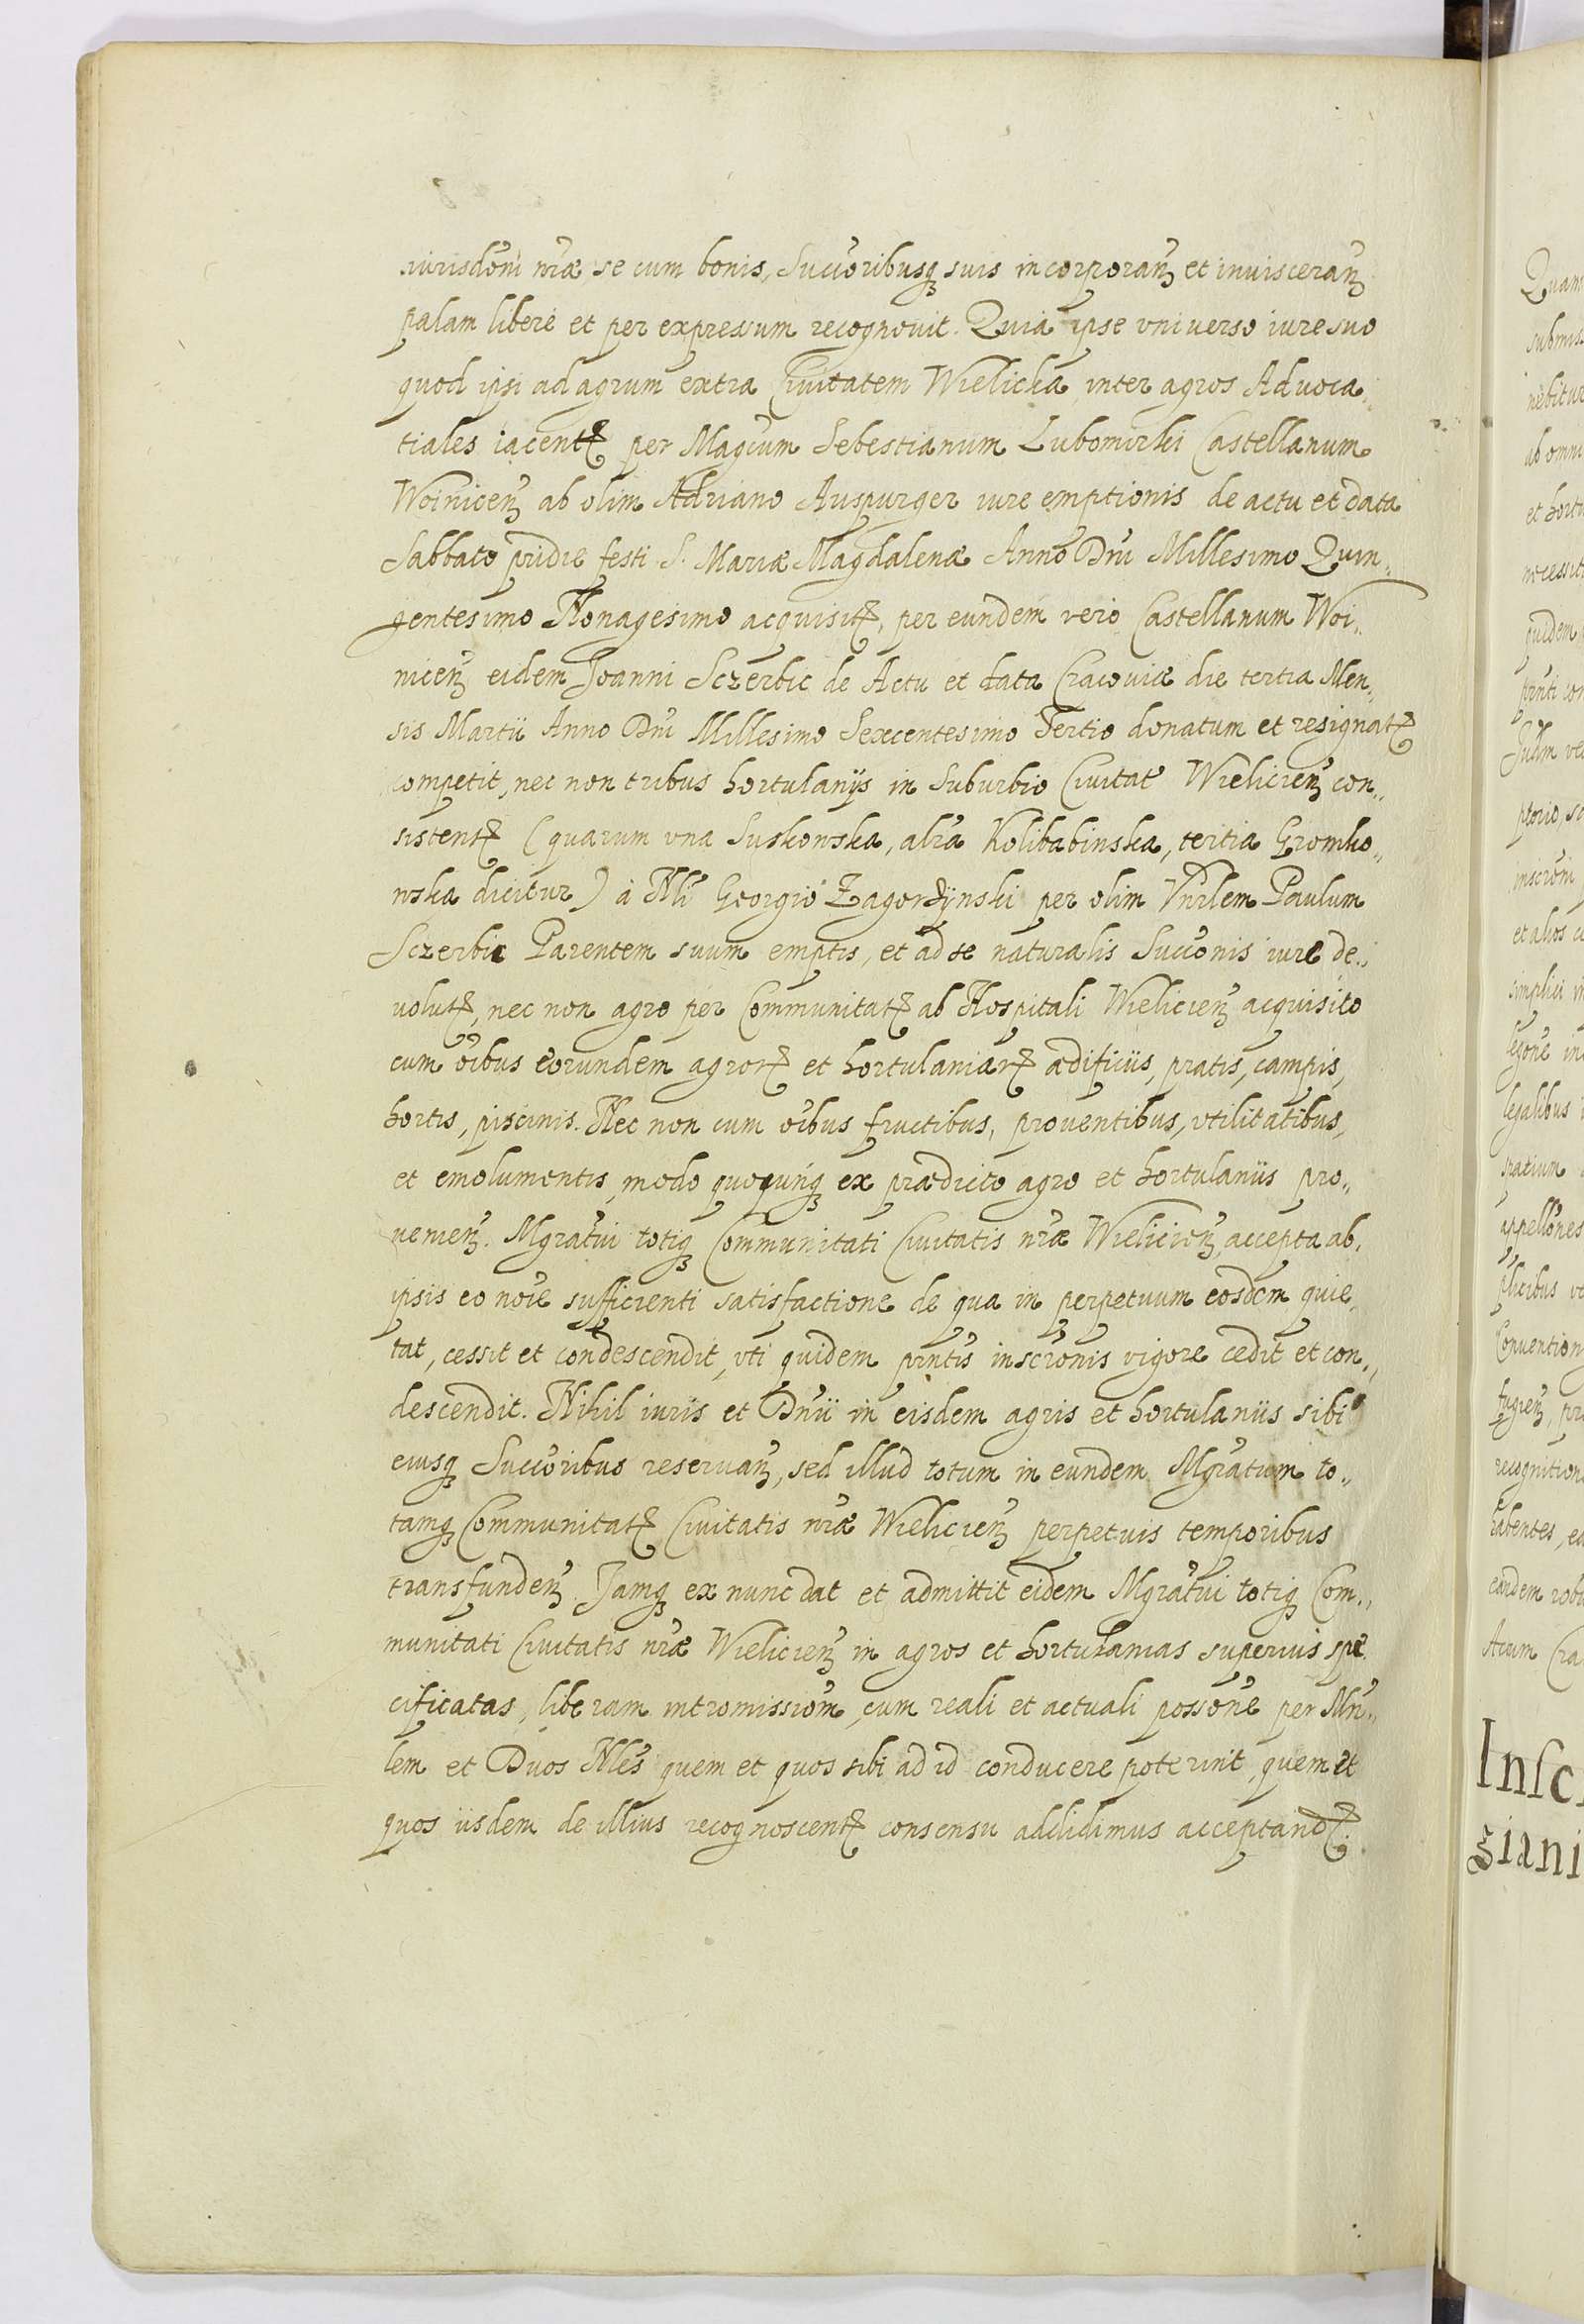 iurisdōni nr̄æ se cum bonis, Succōribusq₃ suis incorporan̄ et inuisceran̄
palam liberè et per expressum recognouit. Quia ipse vniuerso iure suo
quod ipsi ad agrum extra Ciuitatem Wielicka inter agros Aduoca„
tiales iacentꝭ per Magcum Sebestianum Lubomirski Castellanum
Woinicen̄ ab olim Adriano Auspurger iure emptionis de actu et data
Sabbato pridie festi S. Mariæ Magdalenæ Anno Dn̄i Millesimo Quin„
gentesimo Nonagesimo acquisitꝭ, per eundem verò Castellanum Woi„
nicen̄ eidem Joanni Sczerbic de Actu et data Cracouiæ die tertia Men„
sis Martii Anno Dn̄i Millesimo Sexcentesimo Tertio donatum et resignatꝭ
competit, nec non tribus hortulaniis in Suburbio Ciuitat̄ Wielicien̄ con„
sistentꝭ (quarum vna Suskowska, alr̄a Kolibabinska, tertia Gromko„
wska dicitur) à Nl̄i Georgio Zagorzynski per olim Vnr̄lem Paulum
Sczerbic Parentem suum emptis, et ad se naturalis Succōnis iure de„
volutꝭ, nec non agro per Communitatꝭ ab Hospitali Wielicien̄ acquisito
cum ōibus eorundem agrorꝭ et hortulaniarꝭ ædificiis, pratis, campis,
hortis, piscinis. Nec non cum ōibus fructibus, prouentibus, vtilitatibus,
et emolumentis, modo quocunq₃ ex prædicto agro et hortulaniis pro„
uenien̄. Mgrātui totiq₃ Communitati Ciuitatis nr̄æ Wielicien̄, accepta ab„
ipsis eo nōie sufficienti satisfactione de qua in perpetuum eosdem quie„
tat, cessit et condescendit, vti quidem pn̄tis inscrōnis vigore cedit et con„
descendit. Nihil iuris et Dn̄ii in eisdem agris et hortulaniis sibi
eiusq₃ Succōribus reseruan̄, sed illud totum in eundem Mgrātum to„
tamq₃ Communitatꝭ Ciuitatis nr̄æ Wielicien̄ perpetuis temporibus
transfunden̄. Jamq₃ ex nunc dat et admittit eidem Mgrātui totiq₃ Com„
munitati Ciuitatis nr̄æ Wielicien̄ in agros et hortulanias superius spe„
cificatas, liberam intromissiōm, cum reali et actuali possōne per Mn̄„
lem et Duos Nl̄es quem et quos sibi ad id conducere poterint, quem et
quos iisdem de illius recognoscentꝭ consensu addidimus acceptandꝭ.